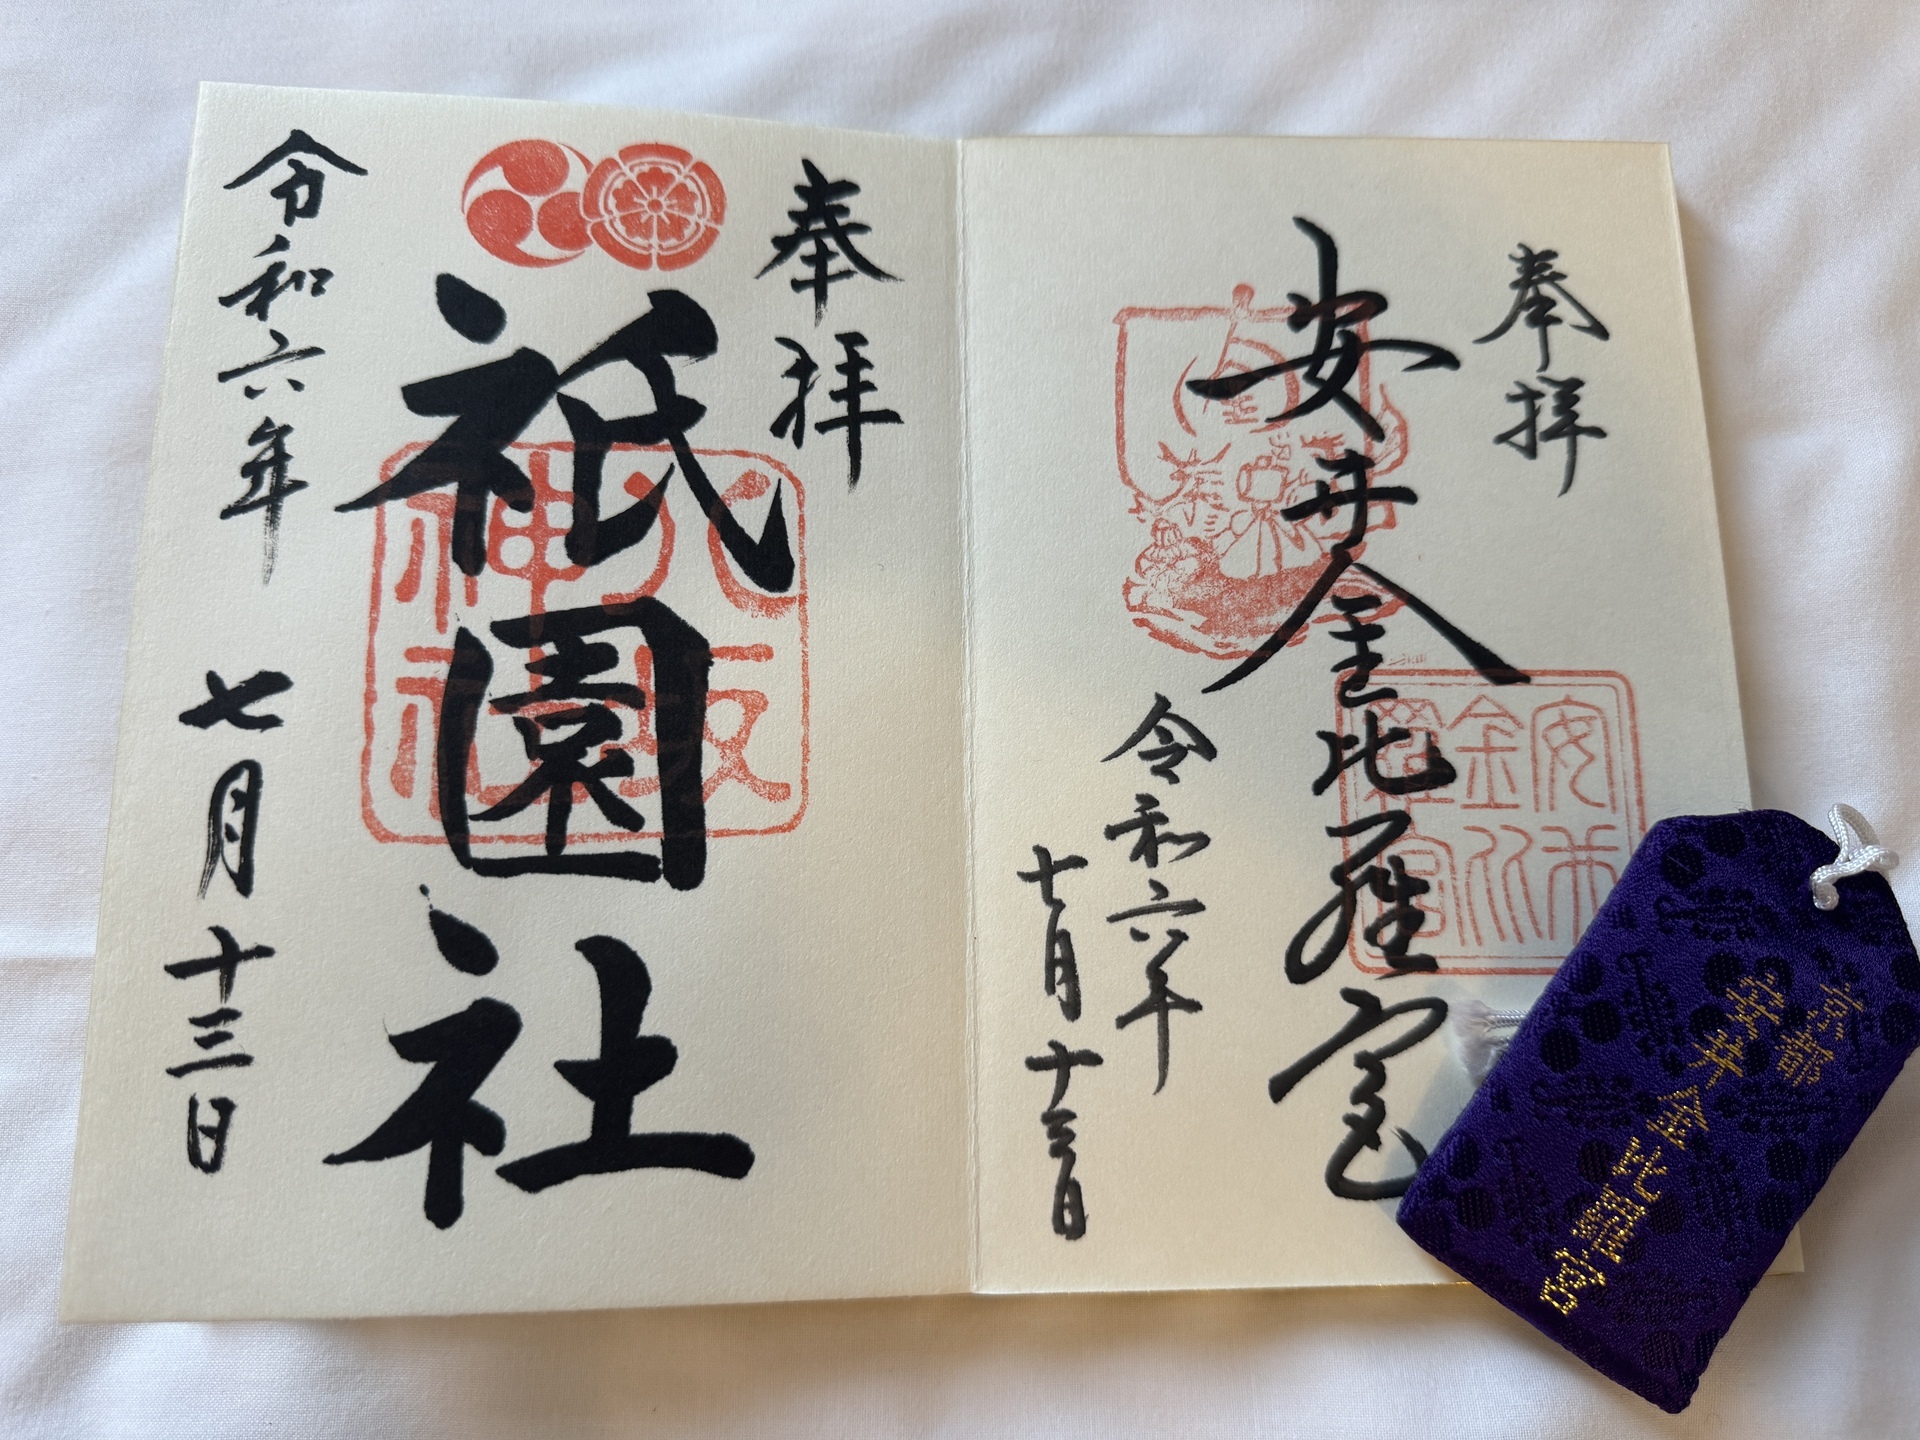 奉拝
安井金比羅宮
令和六年
七月十三日
安井
金比
羅宮
奉拝
祇園社
八坂
神社
令和六年
七月十三日
京都
安井金比羅宮